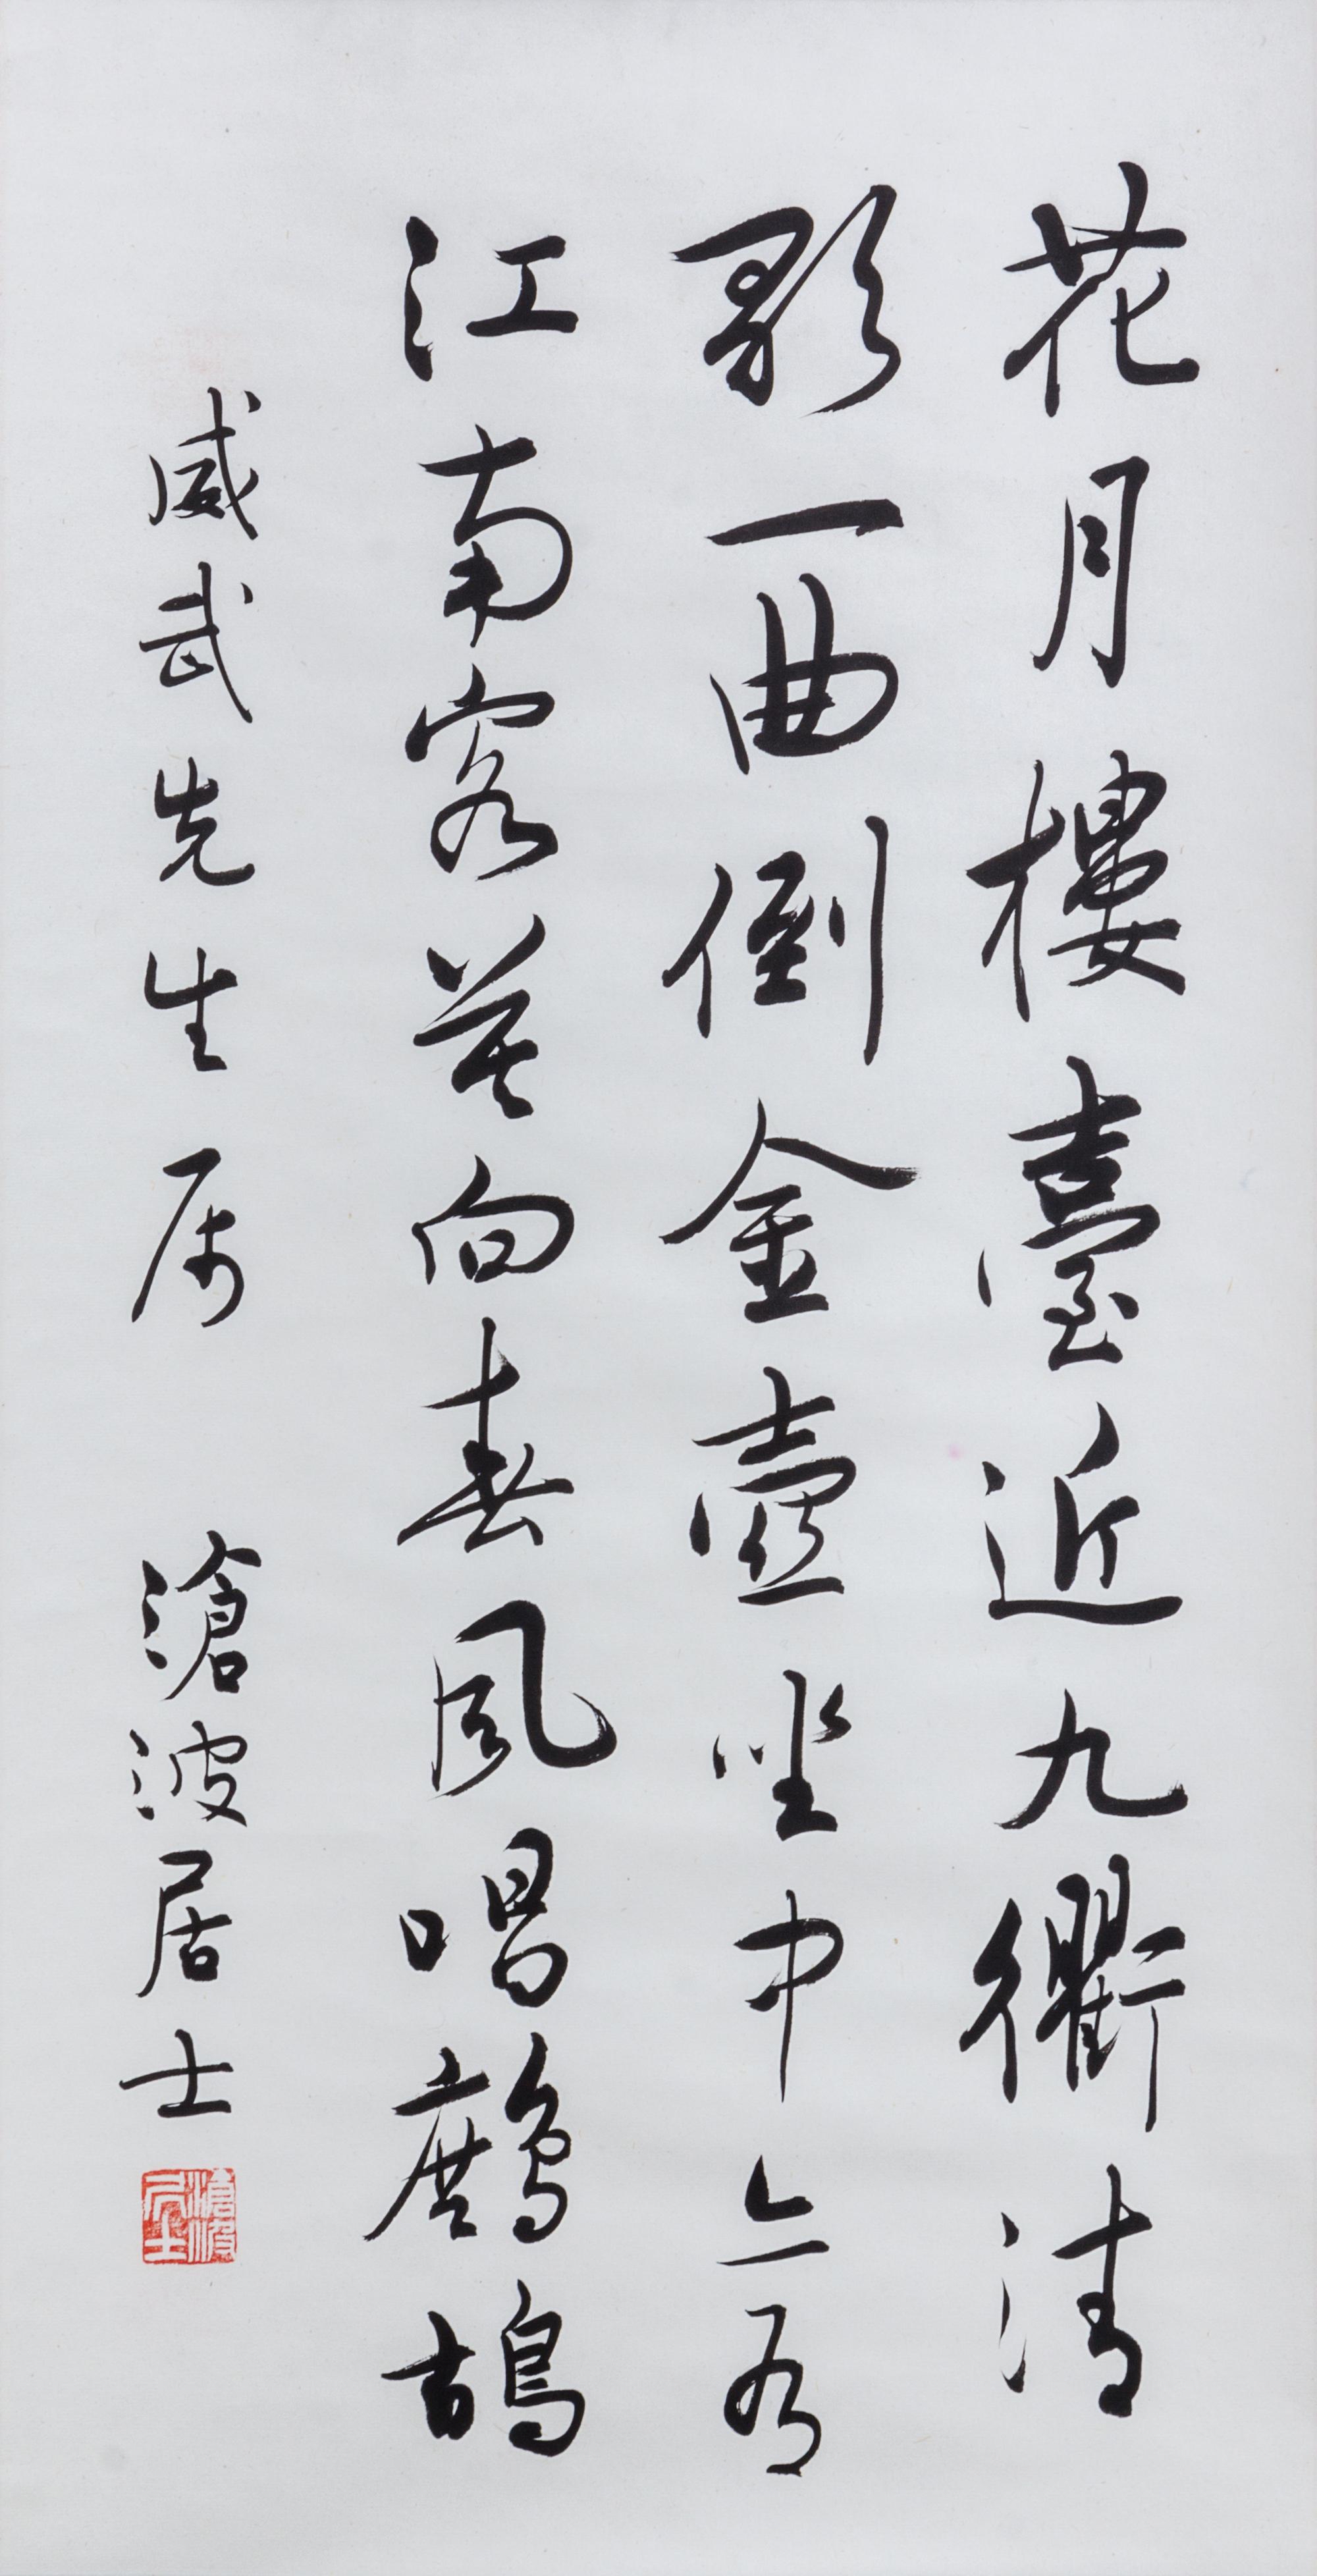 花月樓臺近九衢清
歌一曲倒金壺坐中亦有
江南客莫向春風唱鷓鴣
威武先生属 滄波居士
滄波居士